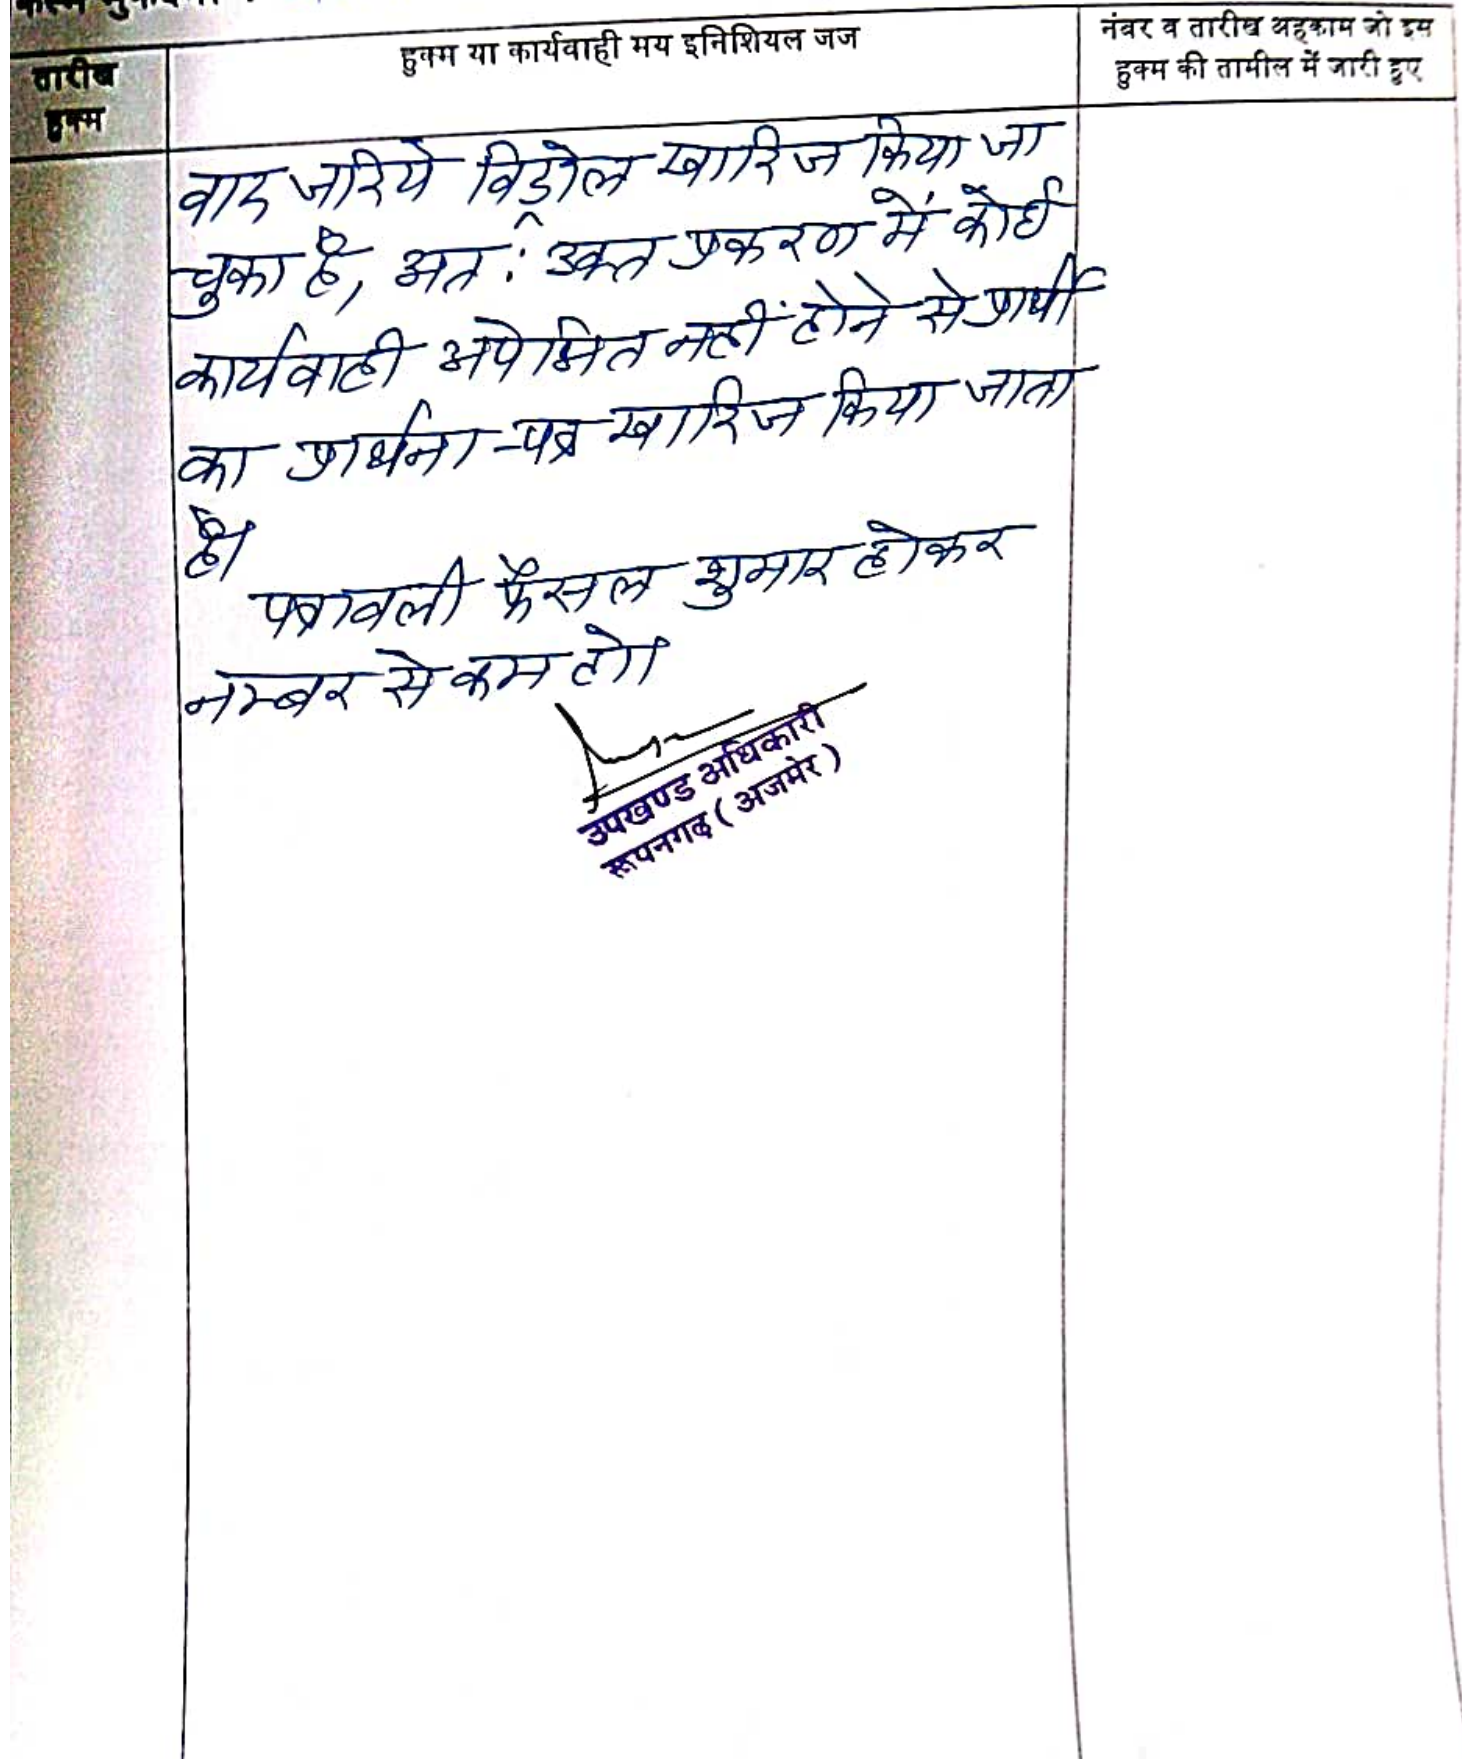 तारीख
हुक्म
हुक्म या कार्यवाही मय इनिशियल जज
नंबर व तारीख अहकाम जो इस
हुक्म की तामील में जारी हुए
वाद जरिये विड्रोल खारिज किया जा
चुका है, अतः उक्त प्रकरण में कोई
कार्यवाही अपेक्षित नहीं होने से प्रार्थी
का प्रार्थना-पत्र खारिज किया जाता
है।
पत्रावली फैसल शुमार होकर
नम्बर से कम हो।
उपखण्ड अधिकारी
रूपनगढ़ (अजमेर)